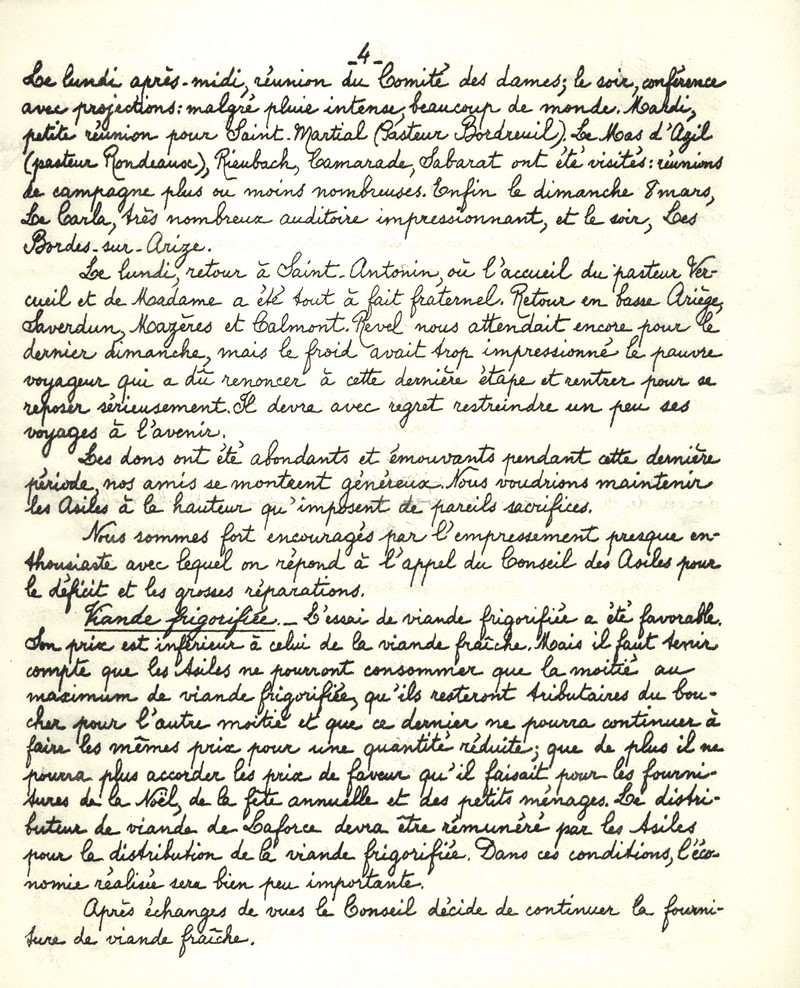 -4-
Le lundi après-midi, réunion du Comité des dames; le soir, conférence
avec projections: malgré pluie intense, beaucoup de monde. Mardi,
petite réunion pour Saint-Martial (Pasteur Bordreuil). Le Mas d'Azil
(pasteur Rondeaux), Rieubach, Camarade, Sabarat ont été visités: réunions
de campagne plus ou moins nombreuses. Enfin le dimanche 8 mars,
Le Carla, très nombreux auditoire impressionnant, et le soir, Les
Bordes-sur-Arize.
Le lundi, retour à Saint-Antonin, où l'accueil du pasteur Ver-
cueil et de Madame a été tout à fait fraternel. Retour en basse Ariège,
Saverdun, Mazères et Calmont. Revel nous attendait encore pour le
dernier dimanche, mais le froid avait trop impressionné le pauvre
voyageur qui a dû renoncer à cette dernière étape et rentrer pour se
reposer sérieusement. Il devra avec regret restreindre un peu ses
voyages à l'avenir.
Les dons ont été abondants et émouvants pendant cette dernière
période, nos amis se montrent généreux. Nous voudrions maintenir
les Asiles à la hauteur qu'imposent de pareils sacrifices.
Nous sommes fort encouragés par l'empressement presque en-
thousiaste avec lequel on répond à l'appel du Conseil des Asiles pour
le déficit et les grosses réparations.
Viande frigorifiée. - L'essai de viande frigorifiée a été favorable.
Son prix est inférieur à celui de la viande fraîche. Mais il faut tenir
compte que les Asiles ne pourront consommer que la moitié au
maximum de viande frigorifiée, qu'ils resteront tributaires du bou-
cher pour l'autre moitié et que ce dernier ne pourra continuer à
faire les mêmes prix pour une quantité réduite; que de plus il ne
pourra plus accorder les prix de faveur qu'il faisait pour les fourni-
tures de la Noël, de la fête annuelle et des petits ménages. Le distri-
buteur de viande de Laforce devra être rémunéré par les Asiles
pour la distribution de la viande frigorifiée. Dans ces conditions, l'éco-
nomie réalisée sera bien peu importante.
Après échanges de vues le Conseil décide de continuer la fourni-
ture de viande fraîche.